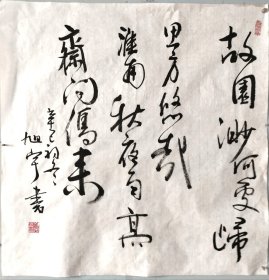 故園渺何處歸
思方悠哉
淮南秋夜雨高
齋聞雁來
初冬
旭宇書